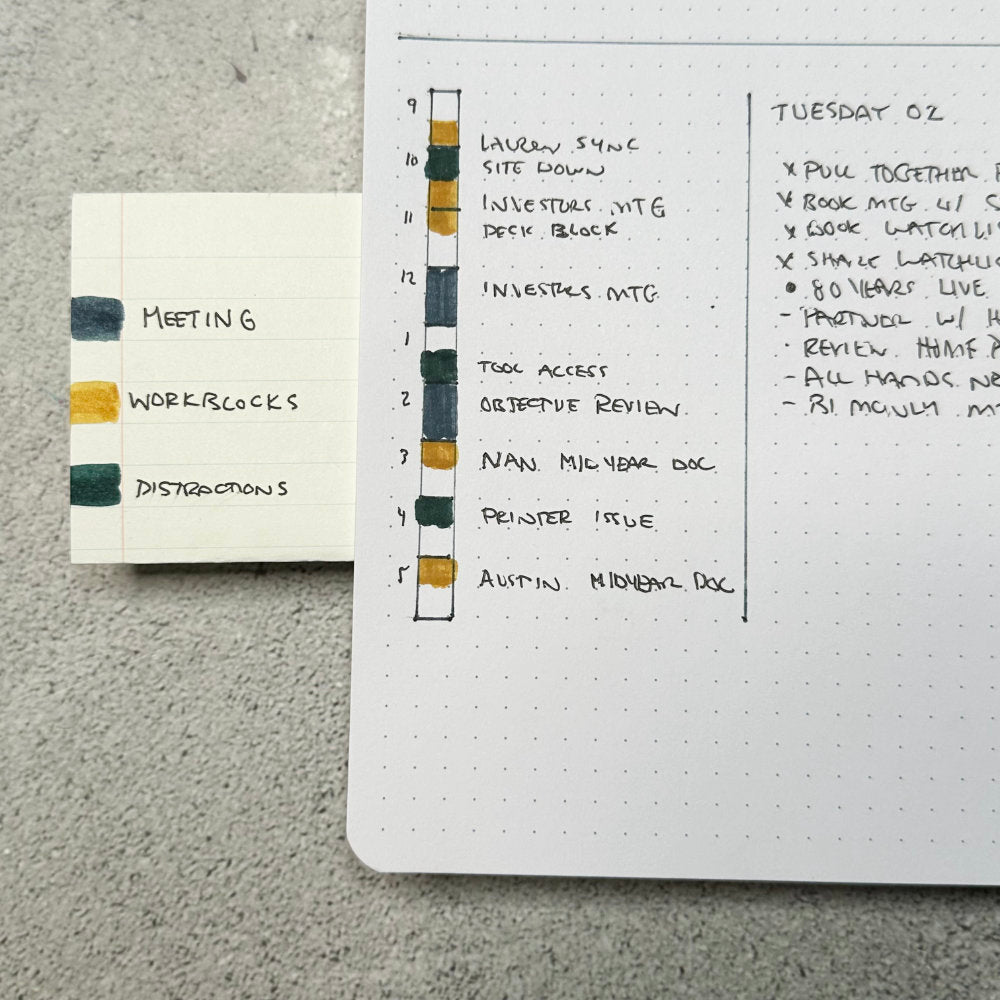 MEETING
WORKBLOCKS
DISTRACTIONS
9
10
11
12
1
2
3
4
5
LAUREN SYNC
SITE DOWN
INVESTORS MTG
DECK BLOCK
INVESTRS MTG
TOOL ACCESS
OBJECTIVE REVIEW
NAN MIDYEAR DOC
PRINTER ISSUE
AUSTIN MIDYEAR DOC
TUESDAY 02
x PULL TOGETHER
x BOOK MTG W/
x BOOK WATCHLI
x SHARE WATCHLIS
• 80 YEARS LIVE
- PARTNER W/ H
· REVIEW HOME P
- ALL HANDS NO
- BI MONLY MT